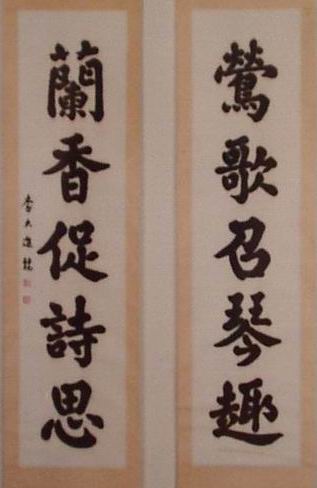 鶯歌召琴趣
蘭香促詩思